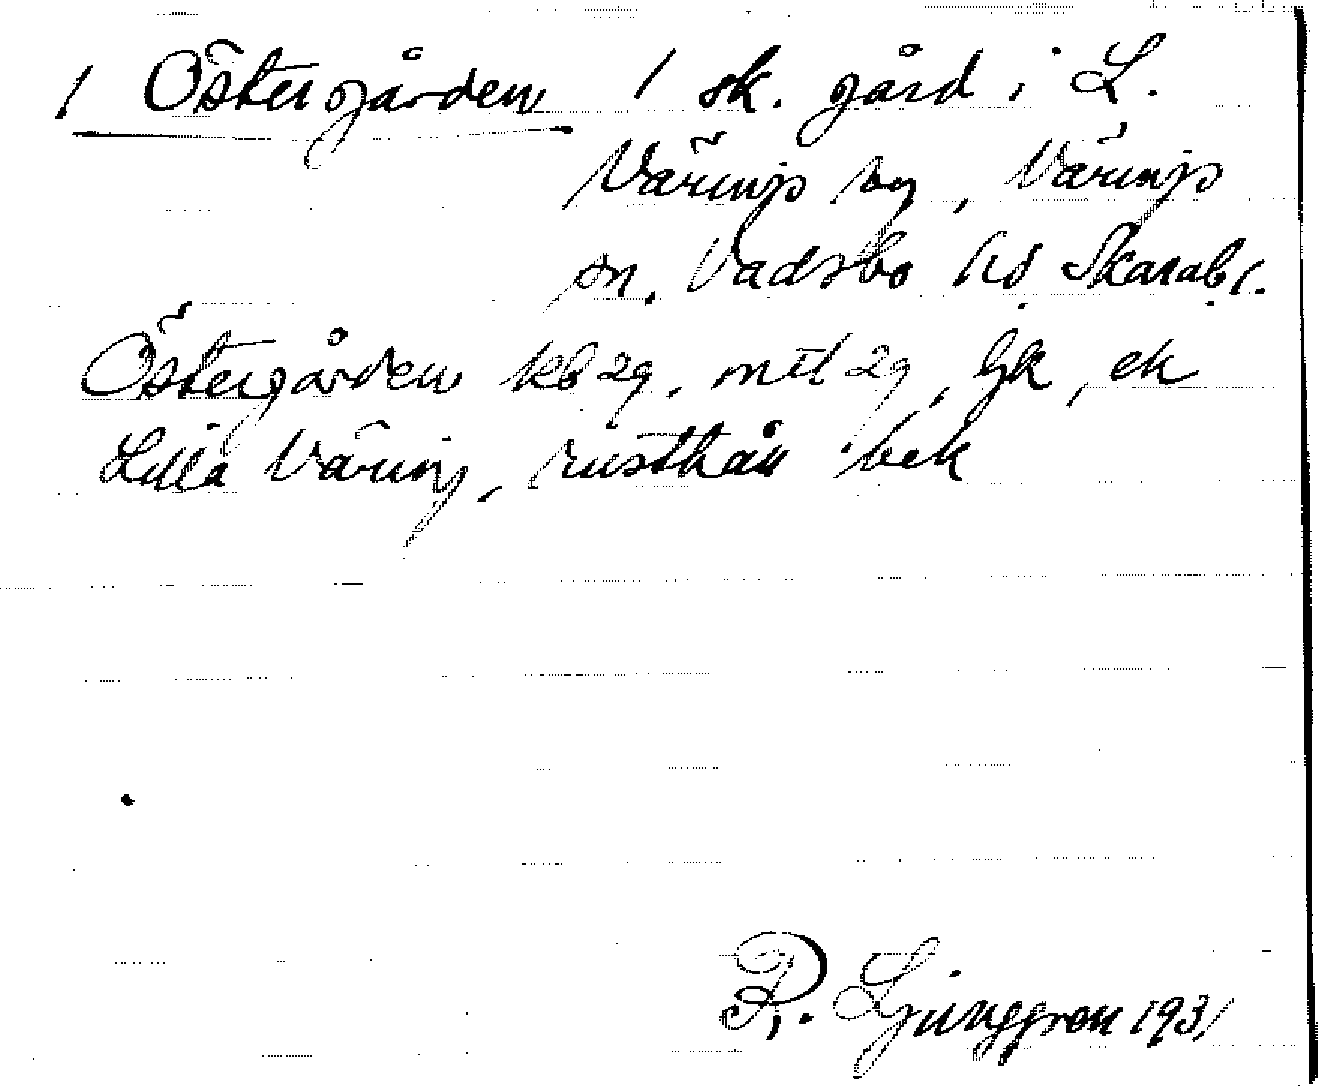 / Östergården / sk. gård i L.
Värings by, Värings
sn. Vadsbo hd Skarab l.
Östergården kb 29, mtl 29, Gk, ek
Lilla Väring, rusthåll bek
R. Ljunggren 1931